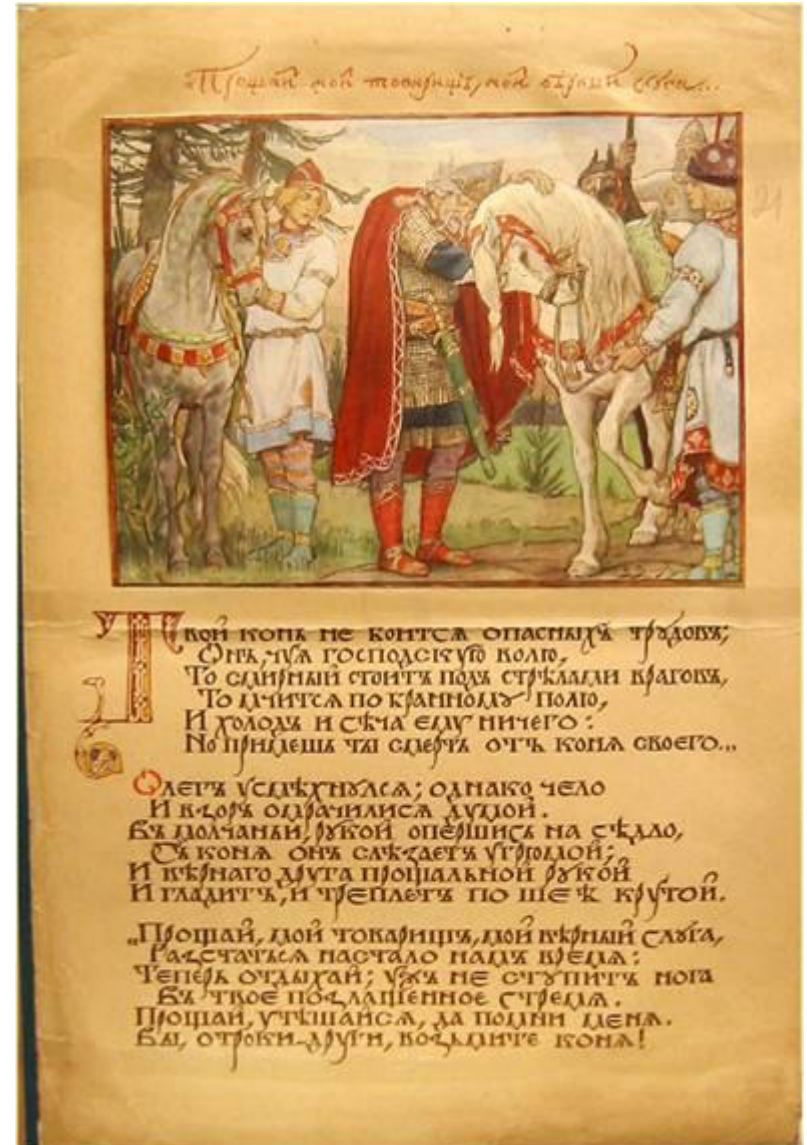 „Прощай мой товарищъ, мой вѣрный слуга...
21
Твой конь не боится опасныхъ трудовъ;
Онъ, чуя господскую волю,
То смирный стоитъ подъ стрѣлами враговъ,
То мчится по бранному полю,
И холодъ и сѣча ему ничего:
Но примешь ты смерть отъ коня своего...
Олегъ усмѣхнулся; однако чело
И взоръ омрачилися думой.
Въ молчаньи, рукой опершись на сѣдло,
Съ коня онъ слѣзаетъ угрюмой;
И вѣрнаго друга прощальной рукой
И гладитъ, и треплетъ по шеѣ крутой.
„Прощай, мой товарищъ, мой вѣрный слуга,
Разстаться настало намъ время:
Теперь отдыхай; ужъ не ступитъ нога
Въ твое позлащенное стремя.
Прощай, утѣшайся, да помни меня.
Вы, отроки-други, возьмите коня!